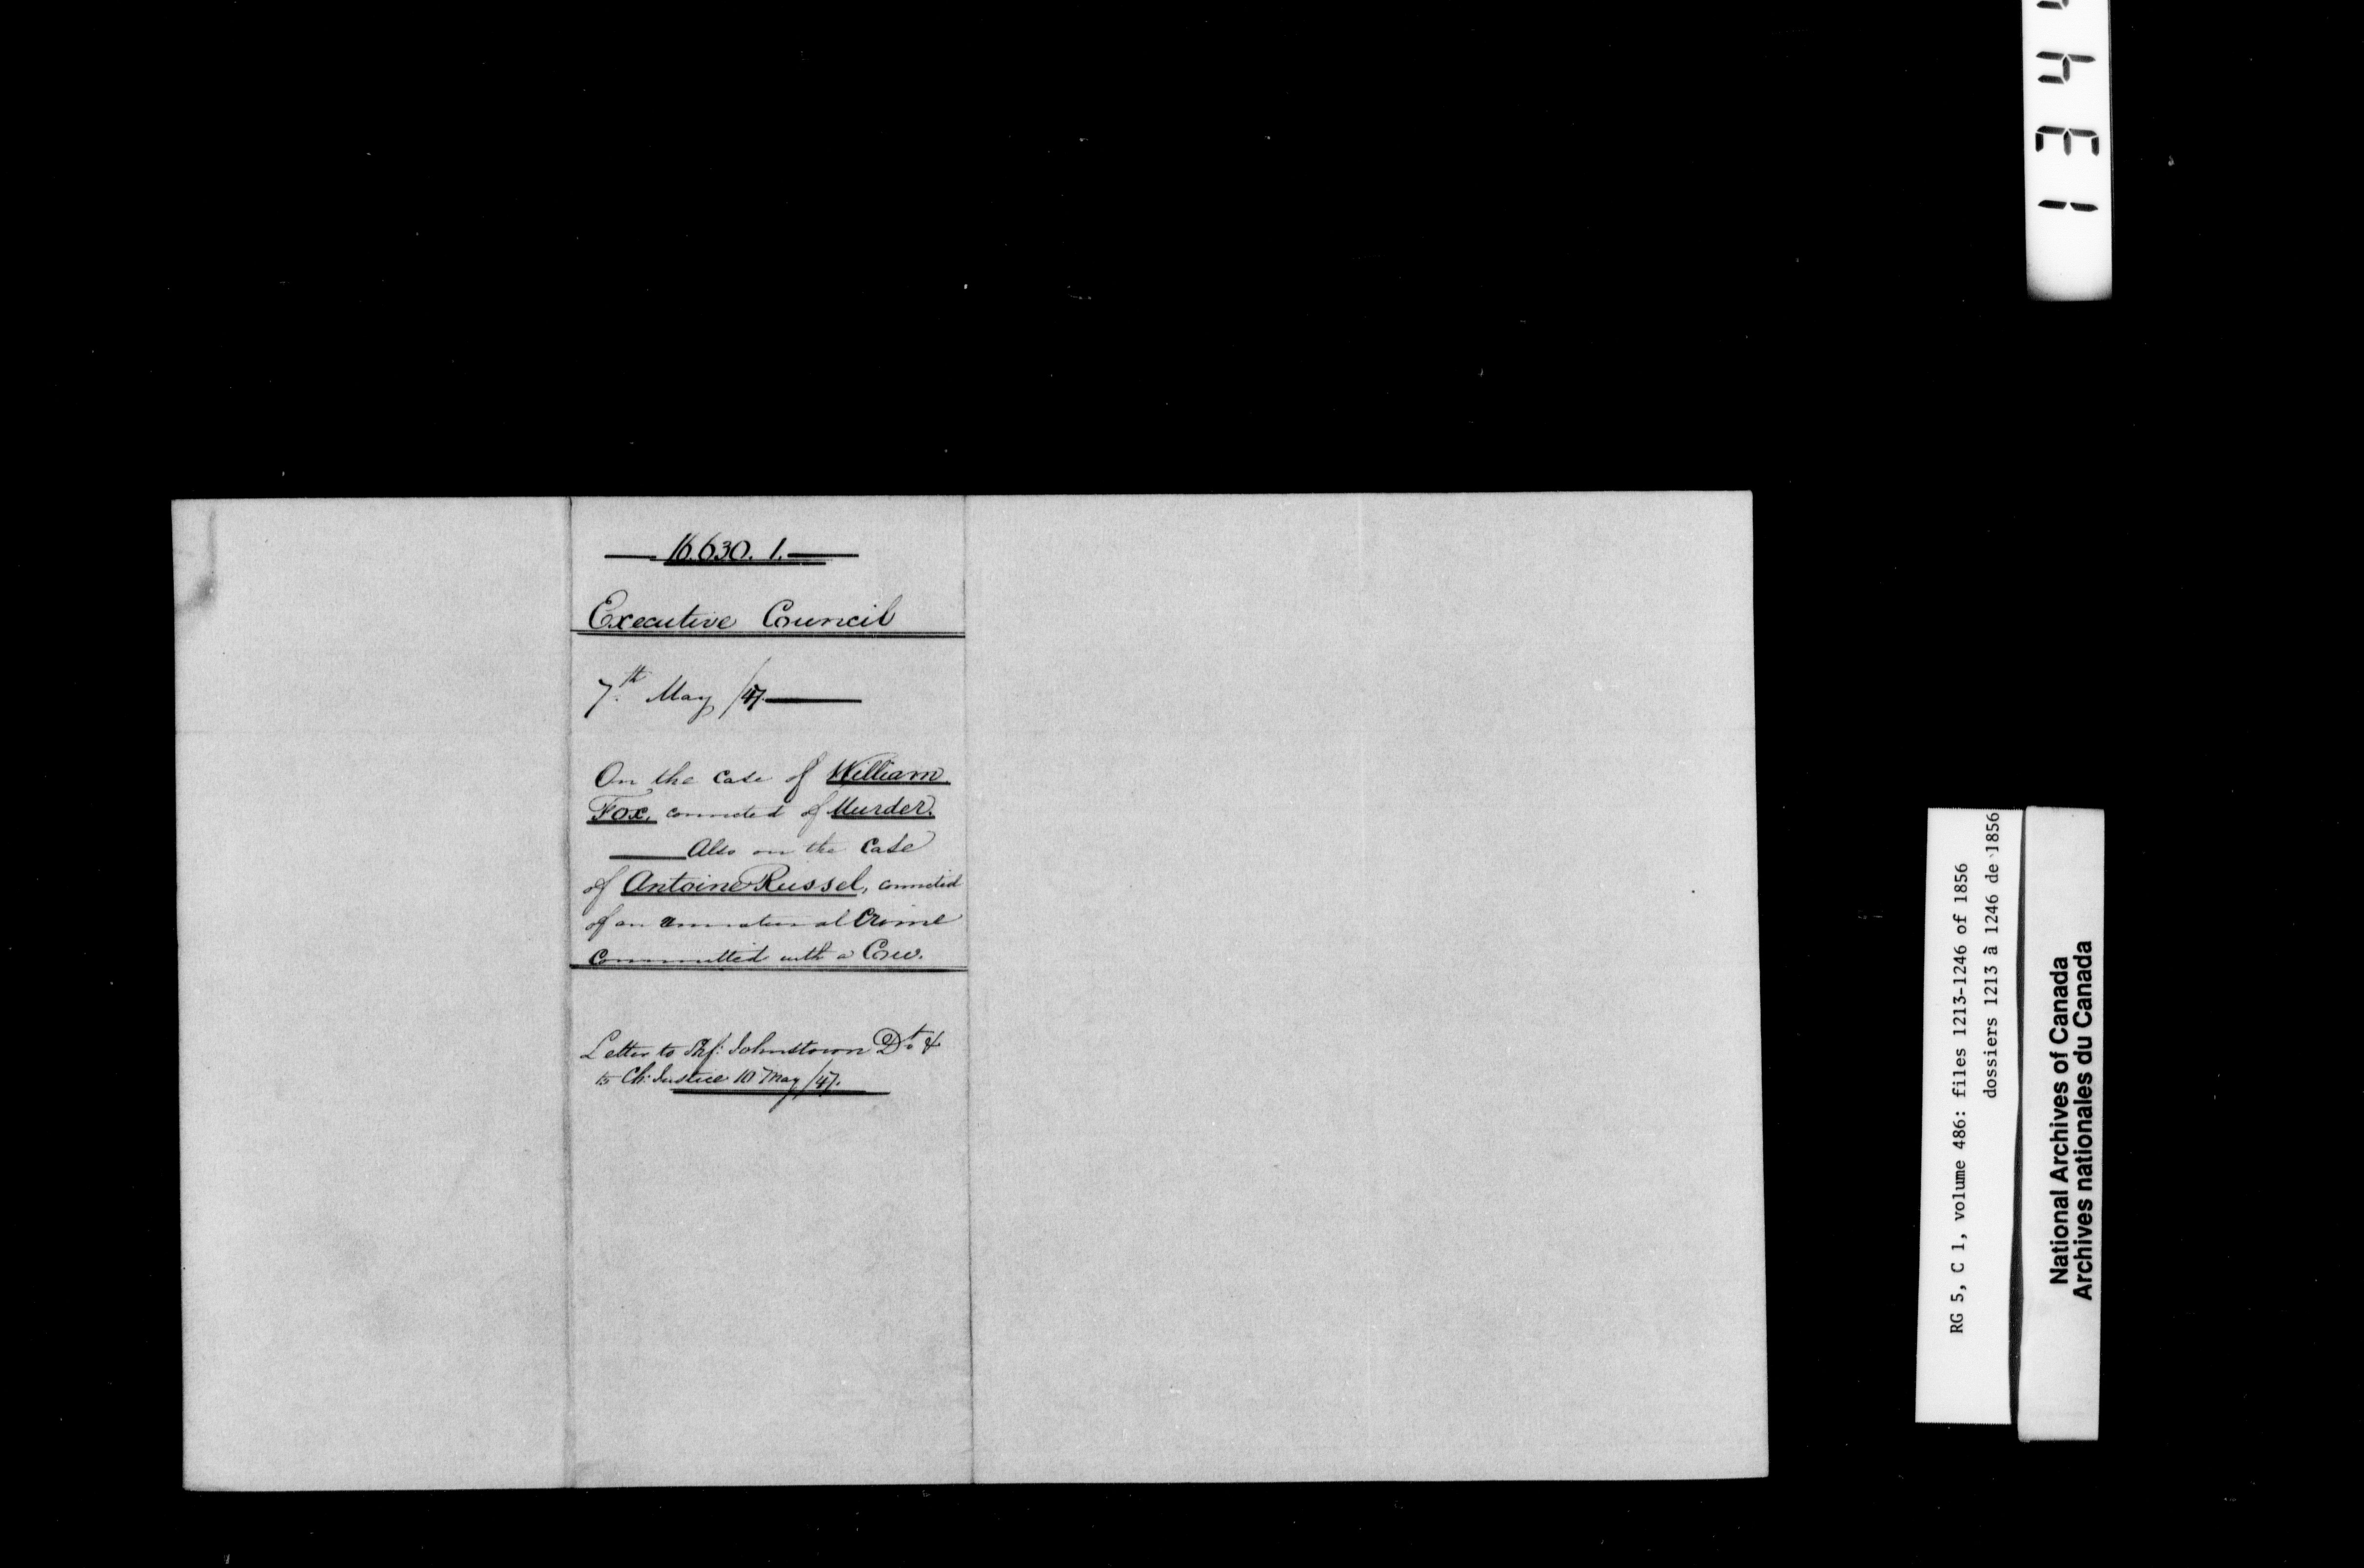 16.630. 1.
Executive Council
7th May /47.
On the case of William
Fox, convicted of Murder.
Also on the Case
of Antoine Russel, convicted
of an unnatural Crime
Committed with a Cow.
Letter to Shf: Johnstown Dt. &
to Ch: Justice 10 May /47.
RG 5, C 1, volume 486: files 1213-1246 of 1856
dossiers 1213 à 1246 de 1856
National Archives of Canada
Archives nationales du Canada
134